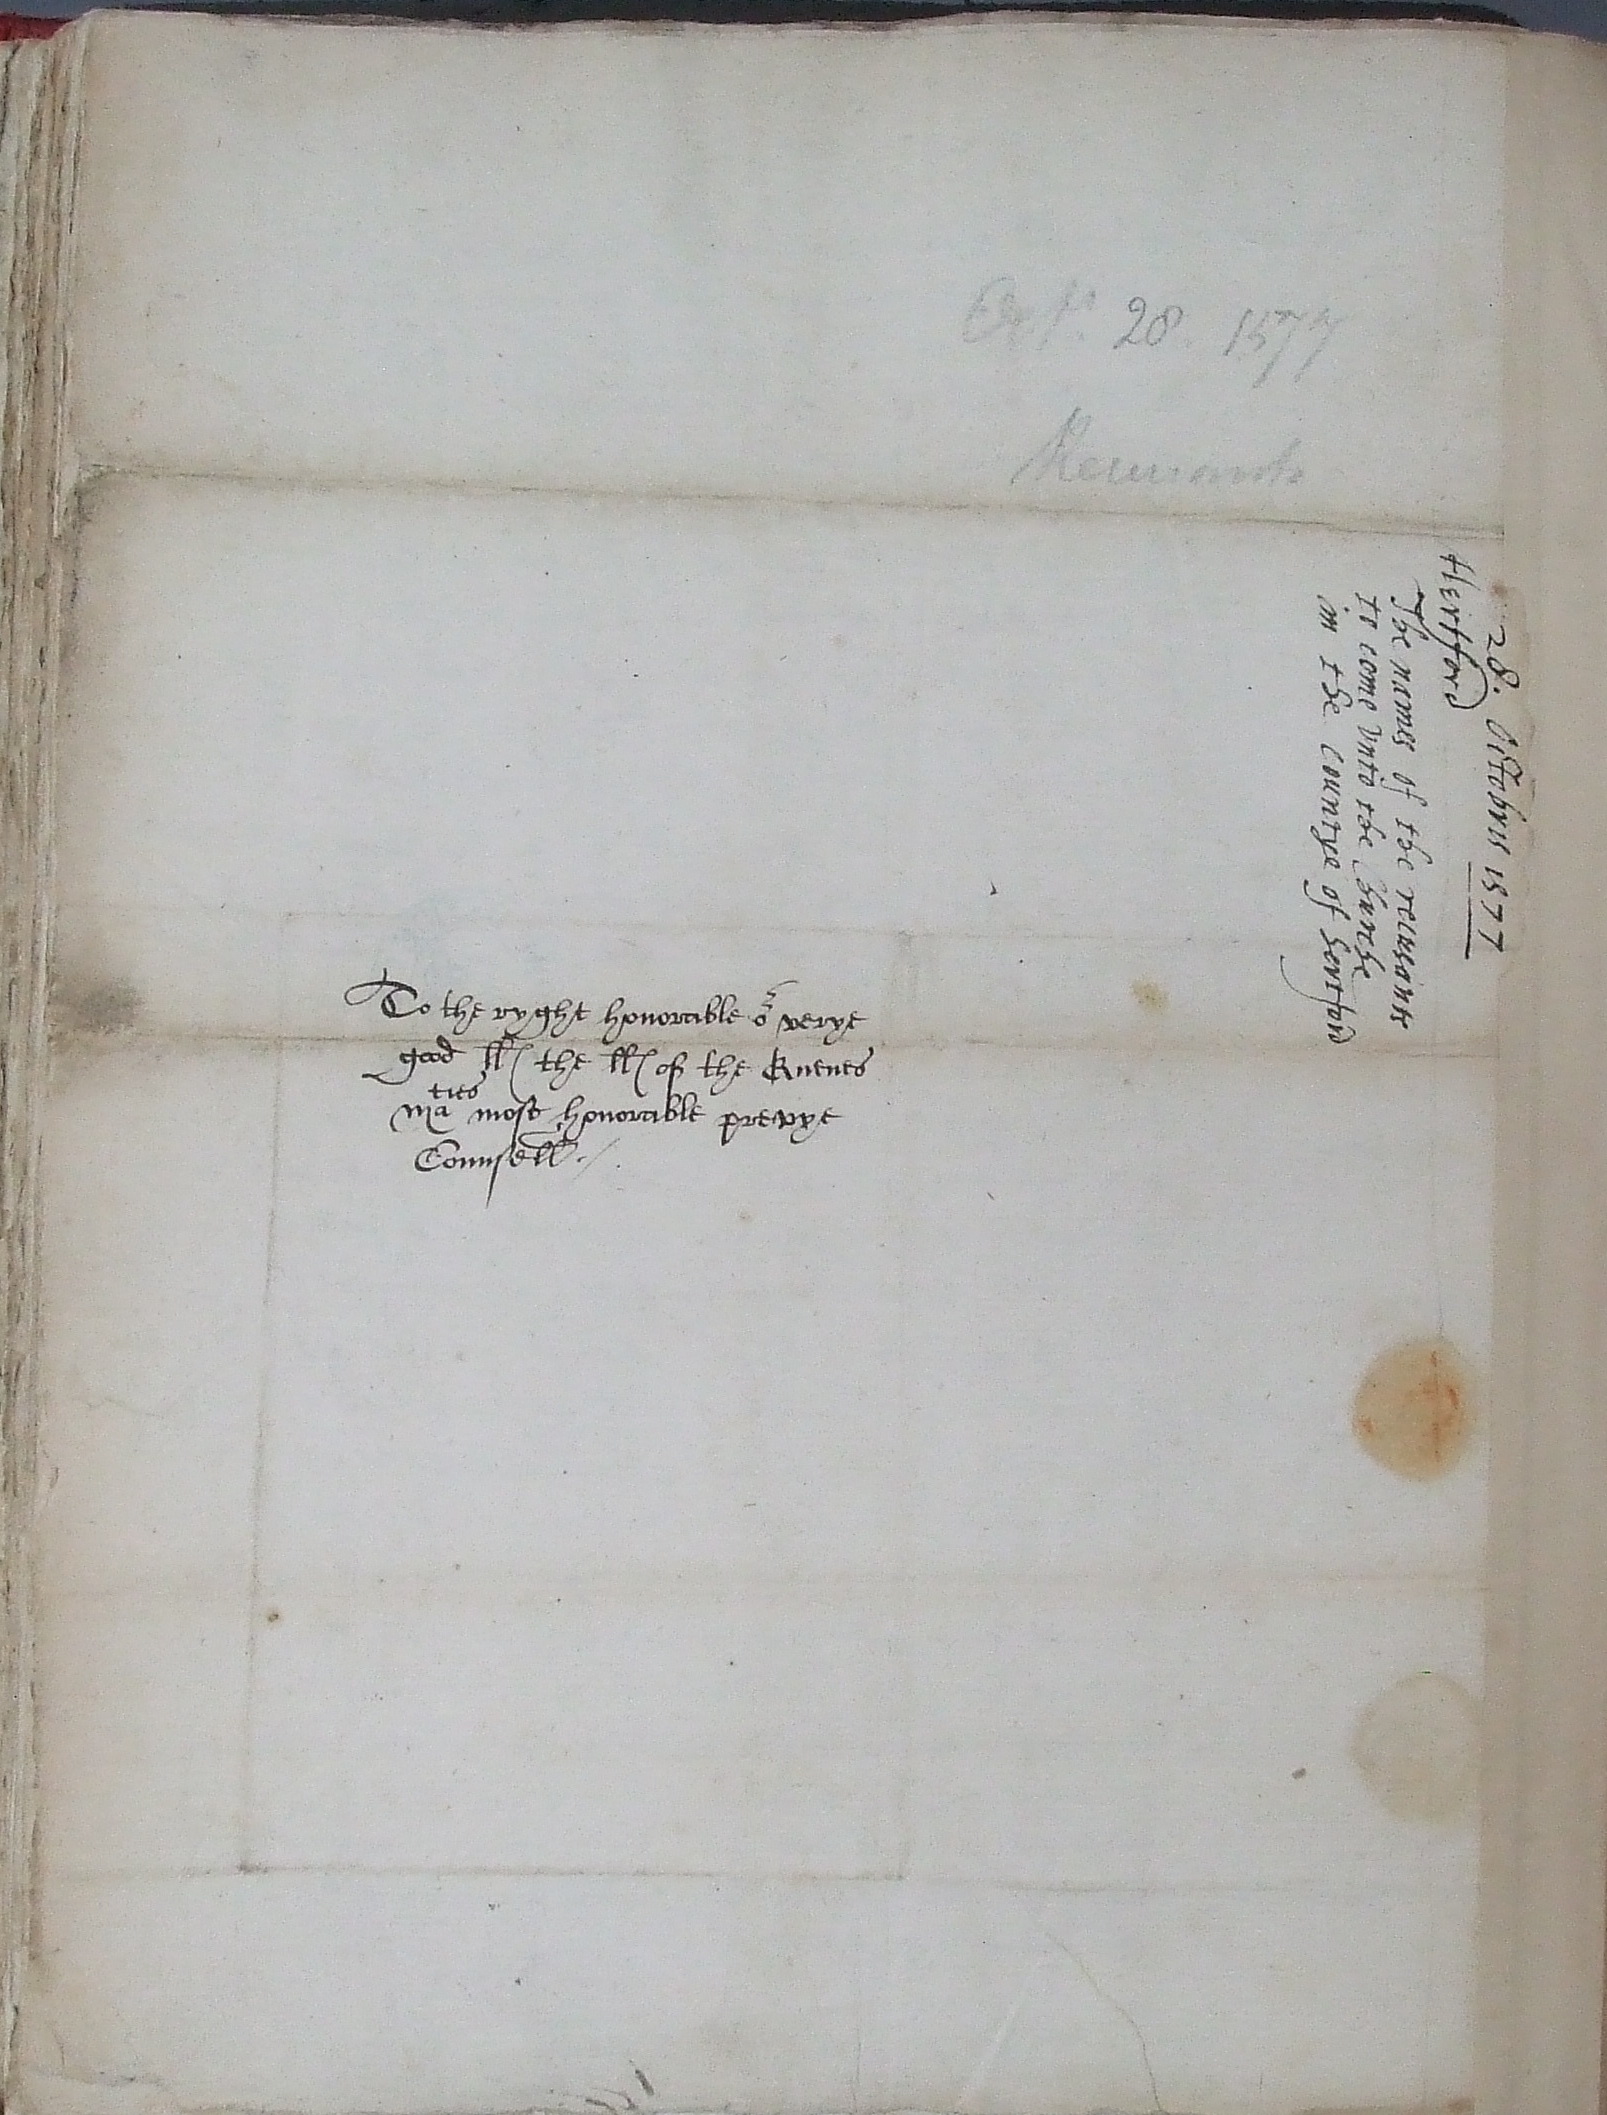 Oct. 28. 1577
Recusants
28. Octobris 1577
Hertford
The names of the recusants
to come vnto the Churche
in the countye of hertford
To the ryght honorable or verye
good ll the ll of the Quenes
maties most honorable prevye
Counsell ./.